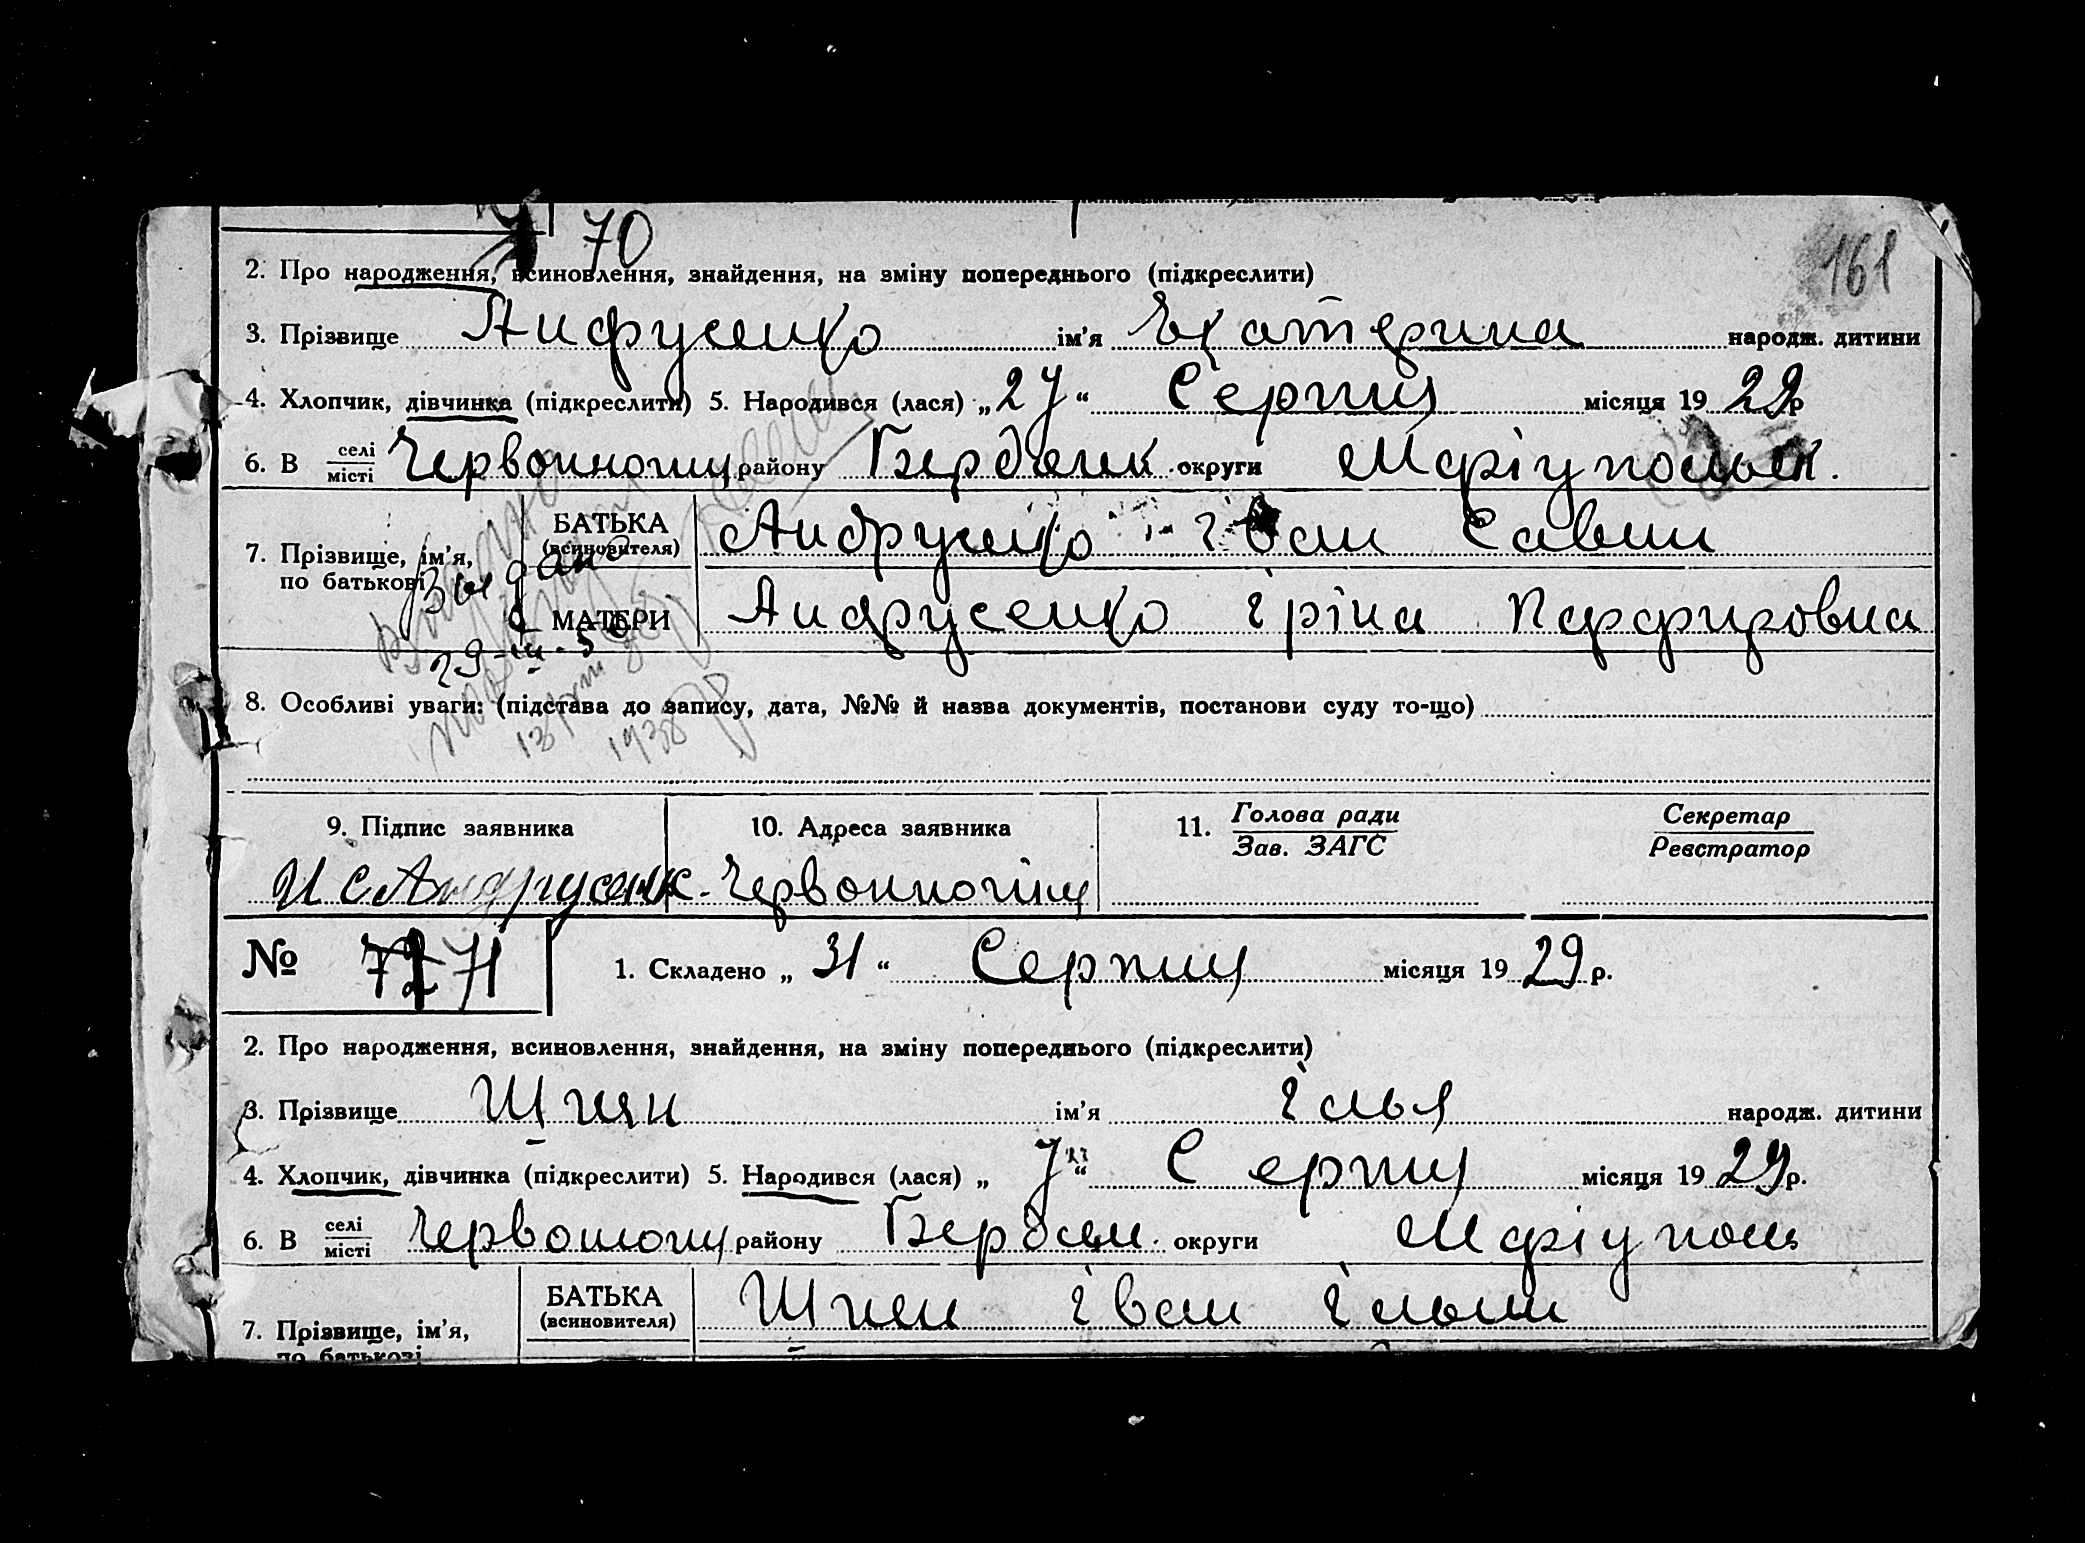 70
161
2. Про народження, всиновлення, знайдення, на зміну попереднього (підкреслити)
3. Прізвище Андрусенко ім'я Екатерина народж. дитини
4. Хлопчик, дівчинка (підкреслити) 5. Народився (лася) „27“ Серпня місяця 1929 р
6. В селі/місті район у Бердянск округи Маріупольск.
7. Прізвище, ім'я, по батькові
БАТЬКА (всиновителя) Андрусенко Іван Савич
МАТЕРИ Андрусенко Іріна Парфировна
Выдано
8. Особливі уваги: (підстава до запису, дата, №№ й назва документів, постанови суду то-що)
1938
9. Підпис заявника 10. Адреса заявника 11. Голова ради/Зав. ЗАГС Секретар/Реєстратор
И С Андрусенк
№ 71 1. Складено „31“ Серпня місяця 1929 р.
2. Про народження, всиновлення, знайдення, на зміну попереднього (підкреслити)
3. Прізвище ім'я Ілья народж. дитини
4. Хлопчик, дівчинка (підкреслити) 5. Народився (лася) „7“ Серпня місяця 1929 р.
6. В селі/місті району Бердян. округи Маріупол
7. Прізвище, ім'я, по батькові
БАТЬКА (всиновителя) Іван Ільич